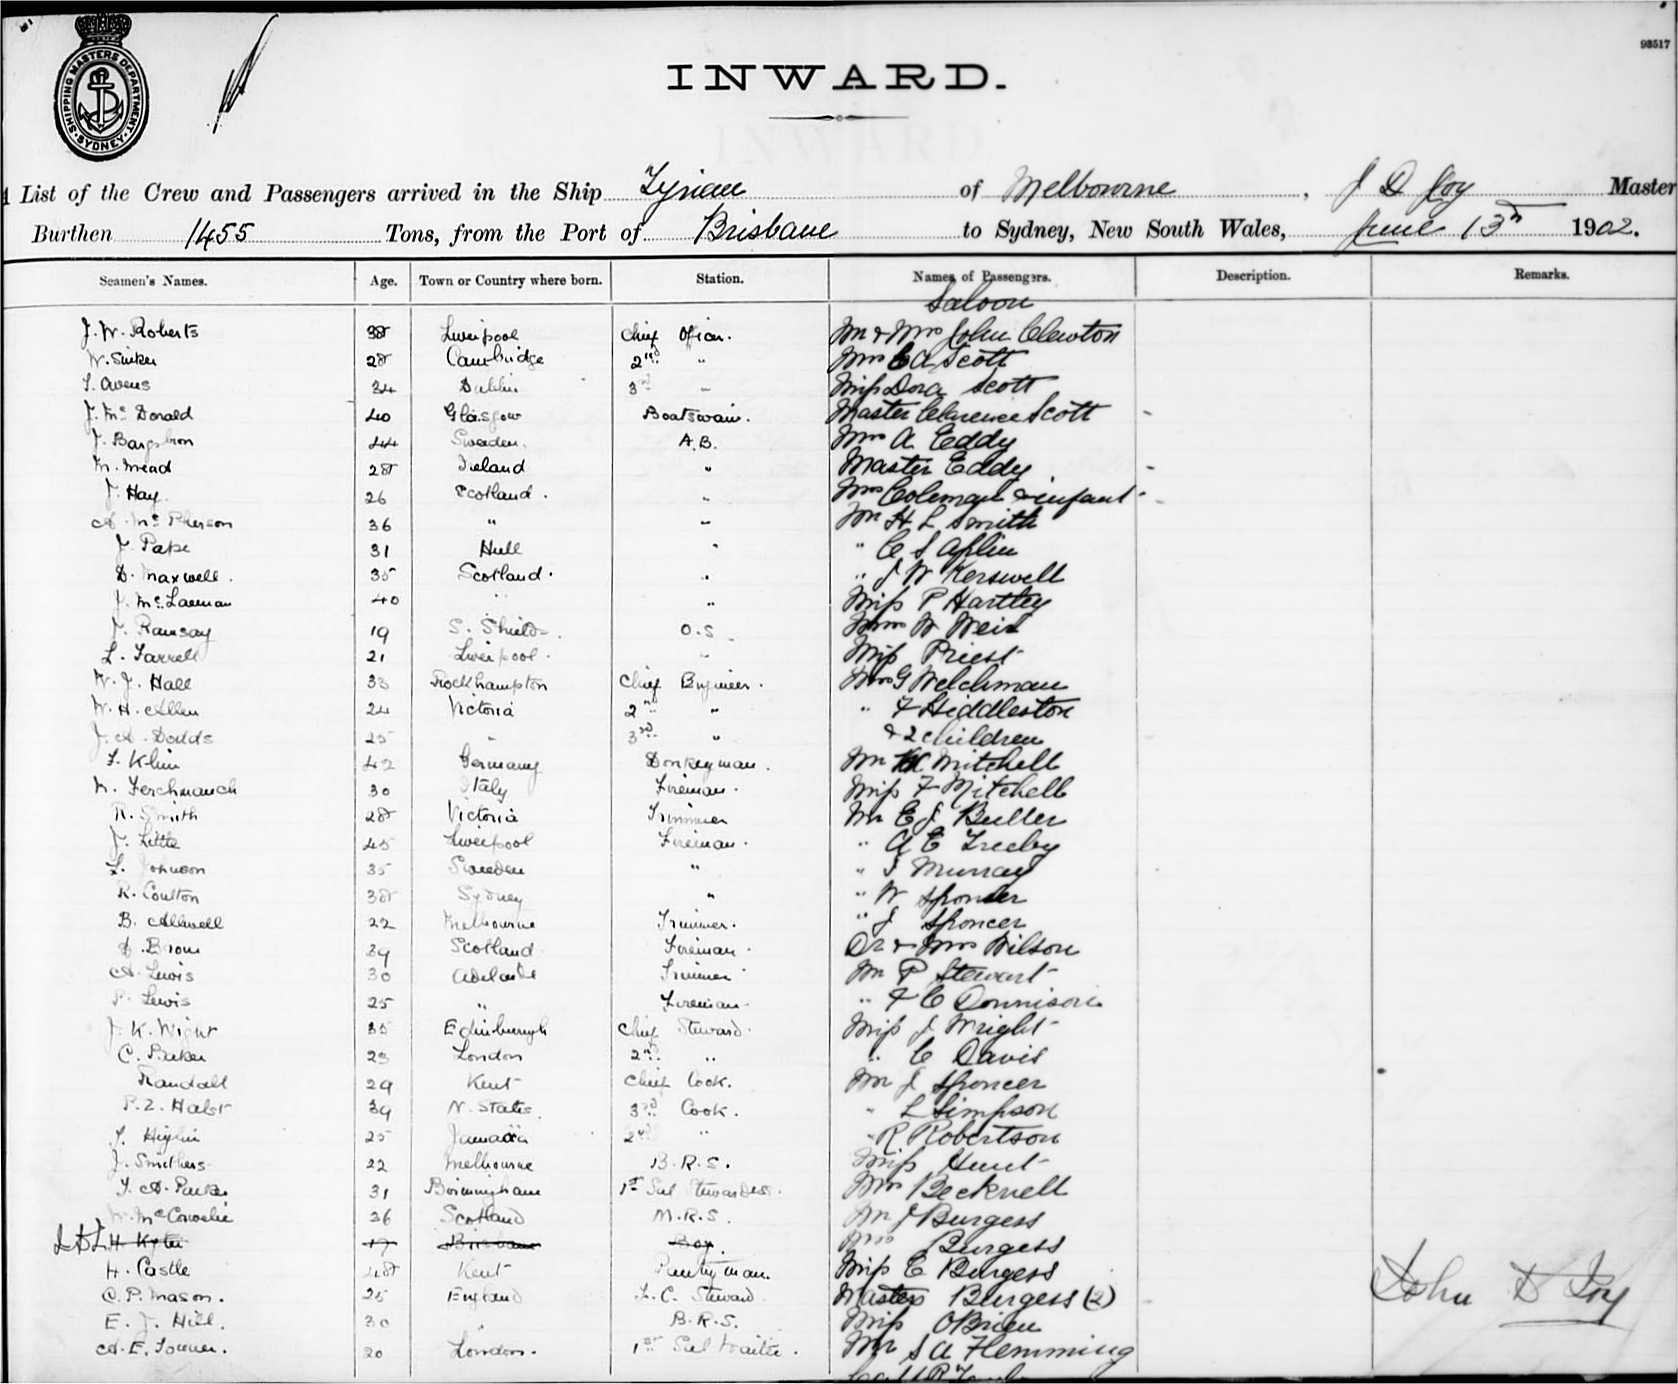 SHIPPING MASTERS DEPARTMENT · SYDNEY ·
93517
INWARD.
List of the Crew and Passengers arrived in the Ship Tyrian of Melbourne, J D Joy Master
Burthen 1455 Tons, from the Port of Brisbane to Sydney, New South Wales, June 13th 1902.
Seamen's Names. Age. Town or Country where born. Station. Names of Passengers. Description. Remarks.
Saloon
J. W. Roberts 38 Liverpool Chief Officer. Mr & Mrs John Clewton
W. Sinker 28 Cambridge 2nd " Mrs C A Scott
T. Owens 34 Dublin 3rd " Miss Dora Scott
J. McDonald 40 Glasgow Boatswain. Master Clarence Scott
J. 44 Sweden. A.B. Mrs A. Eddy
M. Mead 28 Ireland " Master Eddy
J. Hay 26 Scotland. " Mrs Coleman & infant
A. McPherson 36 " " Mr H L Smith
J. Pape 31 Hull " " C S Aplin
D. Maxwell. 35 Scotland. " " J W Kerswell
J. 40 " " Miss P Hartley
J. Ramsay 19 S. Shields. O.S. W Weir
L. Farrell 21 Liverpool. " Miss Priest
W. J. Hall 33 Rockhampton Chief Engineer. Mrs G Welchman
W. H. Allen 24 Victoria 2nd " " F Hiddleston
J. A. Dodds 25 " 3rd " & 2 children
42 Germany Donkeyman. Mr Mitchell
30 Italy Fireman. Miss F Mitchell
R. Smith 28 Victoria Trimmer Mr E J Buller
J. Little 45 Liverpool Fireman. " A E Treeby
L. Johnson 35 Sweden " " Murray
R. Coulton 38 Sydney " " W Spencer
B. Allwell 22 Melbourne Trimmer. " J Spencer
D. 39 Scotland Fireman. Dr & Mrs Wilson
A. Lewis 30 Adelaide Trimmer Mr P Stewart
P. Lewis 25 " Fireman. " F C Donnison
J. K. Wight 35 Edinburgh Chief Steward. Miss J Wright
C. Parker 23 London 2nd " " C Davis
Randall 29 Kent Chief Cook. Mr J Spencer
39 3rd Cook. " L Simpson
25 Jamaica 2nd " " R Robertson
J. Smithers 22 Melbourne B.R.S. Miss Hunt
T. A. Parker 31 Birmingham 1st Sal Stewardess. Mrs Becknell
36 Scotland M.R.S. Mr J Burgess
J D J H. 17 Brisbane Boy. Mrs Burgess
H. Castle 48 Kent Pantryman. Miss E Burgess
C. P. Mason. 25 England F. C. Steward Masters Burgess (2)
E. J. Hill. 30 " B.R.S. Miss OBrien
A. E. Towner. 20 London. 1st Sal Waiter. Mr S A Flemming
John D Joy